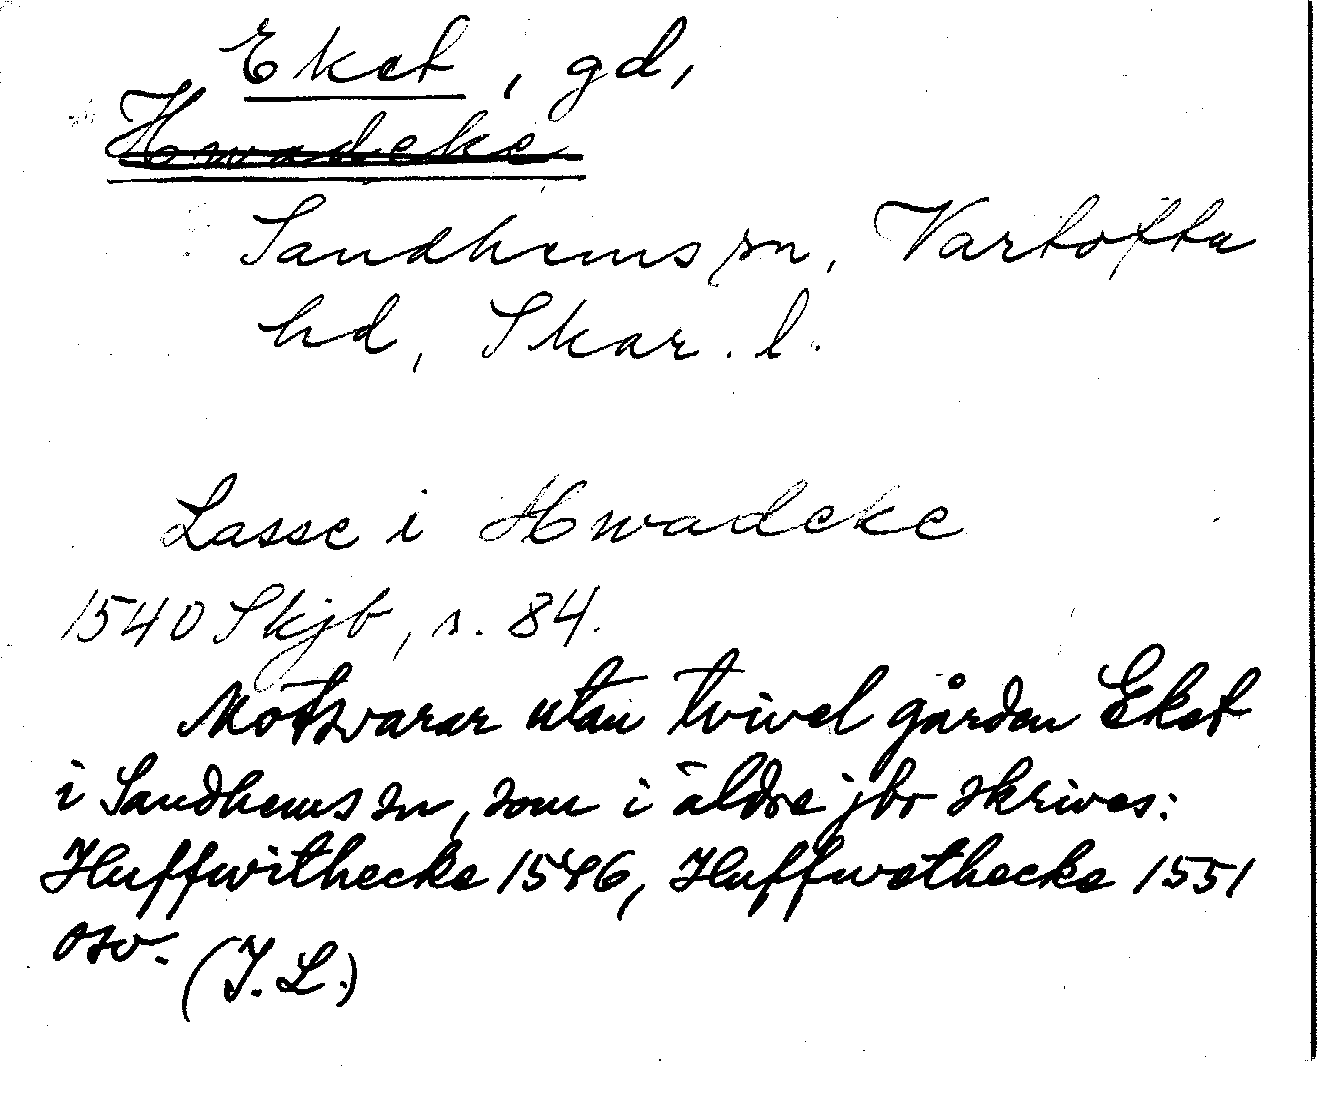 Eket, gd,
Hwadeke
Sandhems sn, Vartofta
hd, Skar. l.
Lasse i Hwadeke
1540 Skjb, s. 84.
Motsvarar utan tvivel gården Eket
i Sandhems sn, som i äldre jbr skrives:
Huffwithecke 1546, Huffwethecke 1551
osv. (I. L.)